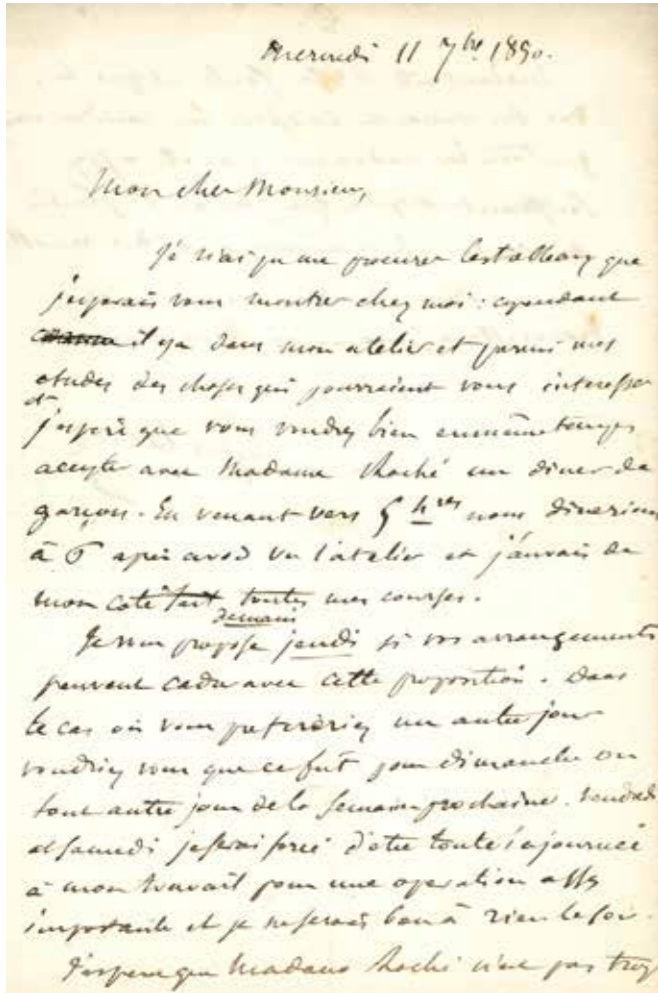 Mercredi 11 7bre 1850.
Mon cher Monsieur,
Je n'ai pu me procurer les tableaux que
j'esperais vous montrer chez moi : cependant
il y a dans mon atelier et parmi mes
etudes des choses qui pourraient vous interesser
et
j'espere que vous voudrez bien en même temps
accepter avec Madame Roché un diner de
garçon. En venant vers 5 hres nous dinerions
à 6 après avoir vu l'atelier et j'aurais de
mon coté fait toutes mes courses.
demain
Je vous propose jeudi si vos arrangements
peuvent cadrer avec cette proposition. Dans
le cas où vous prefereriez un autre jour
voudriez vous que ce fut pour dimanche ou
tout autre jour de la semaine prochaine. Vendredi
et samedi je serai forcé d'etre toute la journée
à mon travail pour une operation assez
importante et je ne serais bon à rien le soir.
J'espere que Madame Roché n'est pas trop